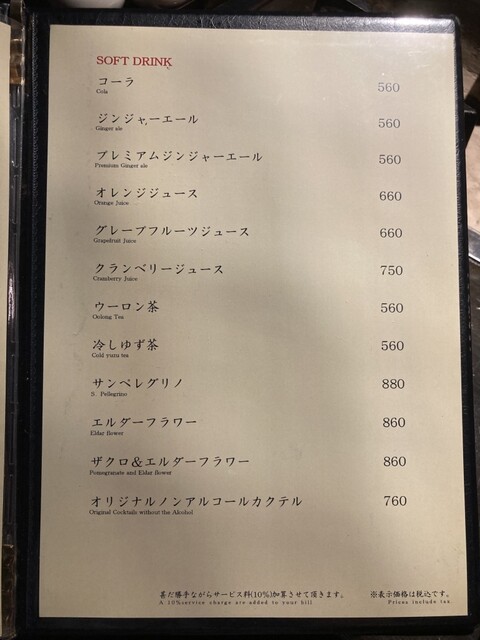 SOFT DRINK
コーラ 560
Cola
ジンジャーエール 560
Ginger ale
プレミアムジンジャーエール 560
Premium Ginger ale
オレンジジュース 660
Orange Juice
グレープフルーツジュース 660
Grapefruit Juice
クランベリージュース 750
Cranberry Juice
ウーロン茶 560
Oolong Tea
冷しゆず茶 560
Cold yuzu tea
サンペレグリノ 880
S. Pellegrino
エルダーフラワー 860
Eldar flower
ザクロ&エルダーフラワー 860
Pomegranate and Eldar flower
オリジナルノンアルコールカクテル 760
Original Cocktails without the Alcohol
甚だ勝手ながらサービス料(10%)加算させて頂きます。 ※表示価格は税込です。
A 10%service charge are added to your bill Prices include tax.